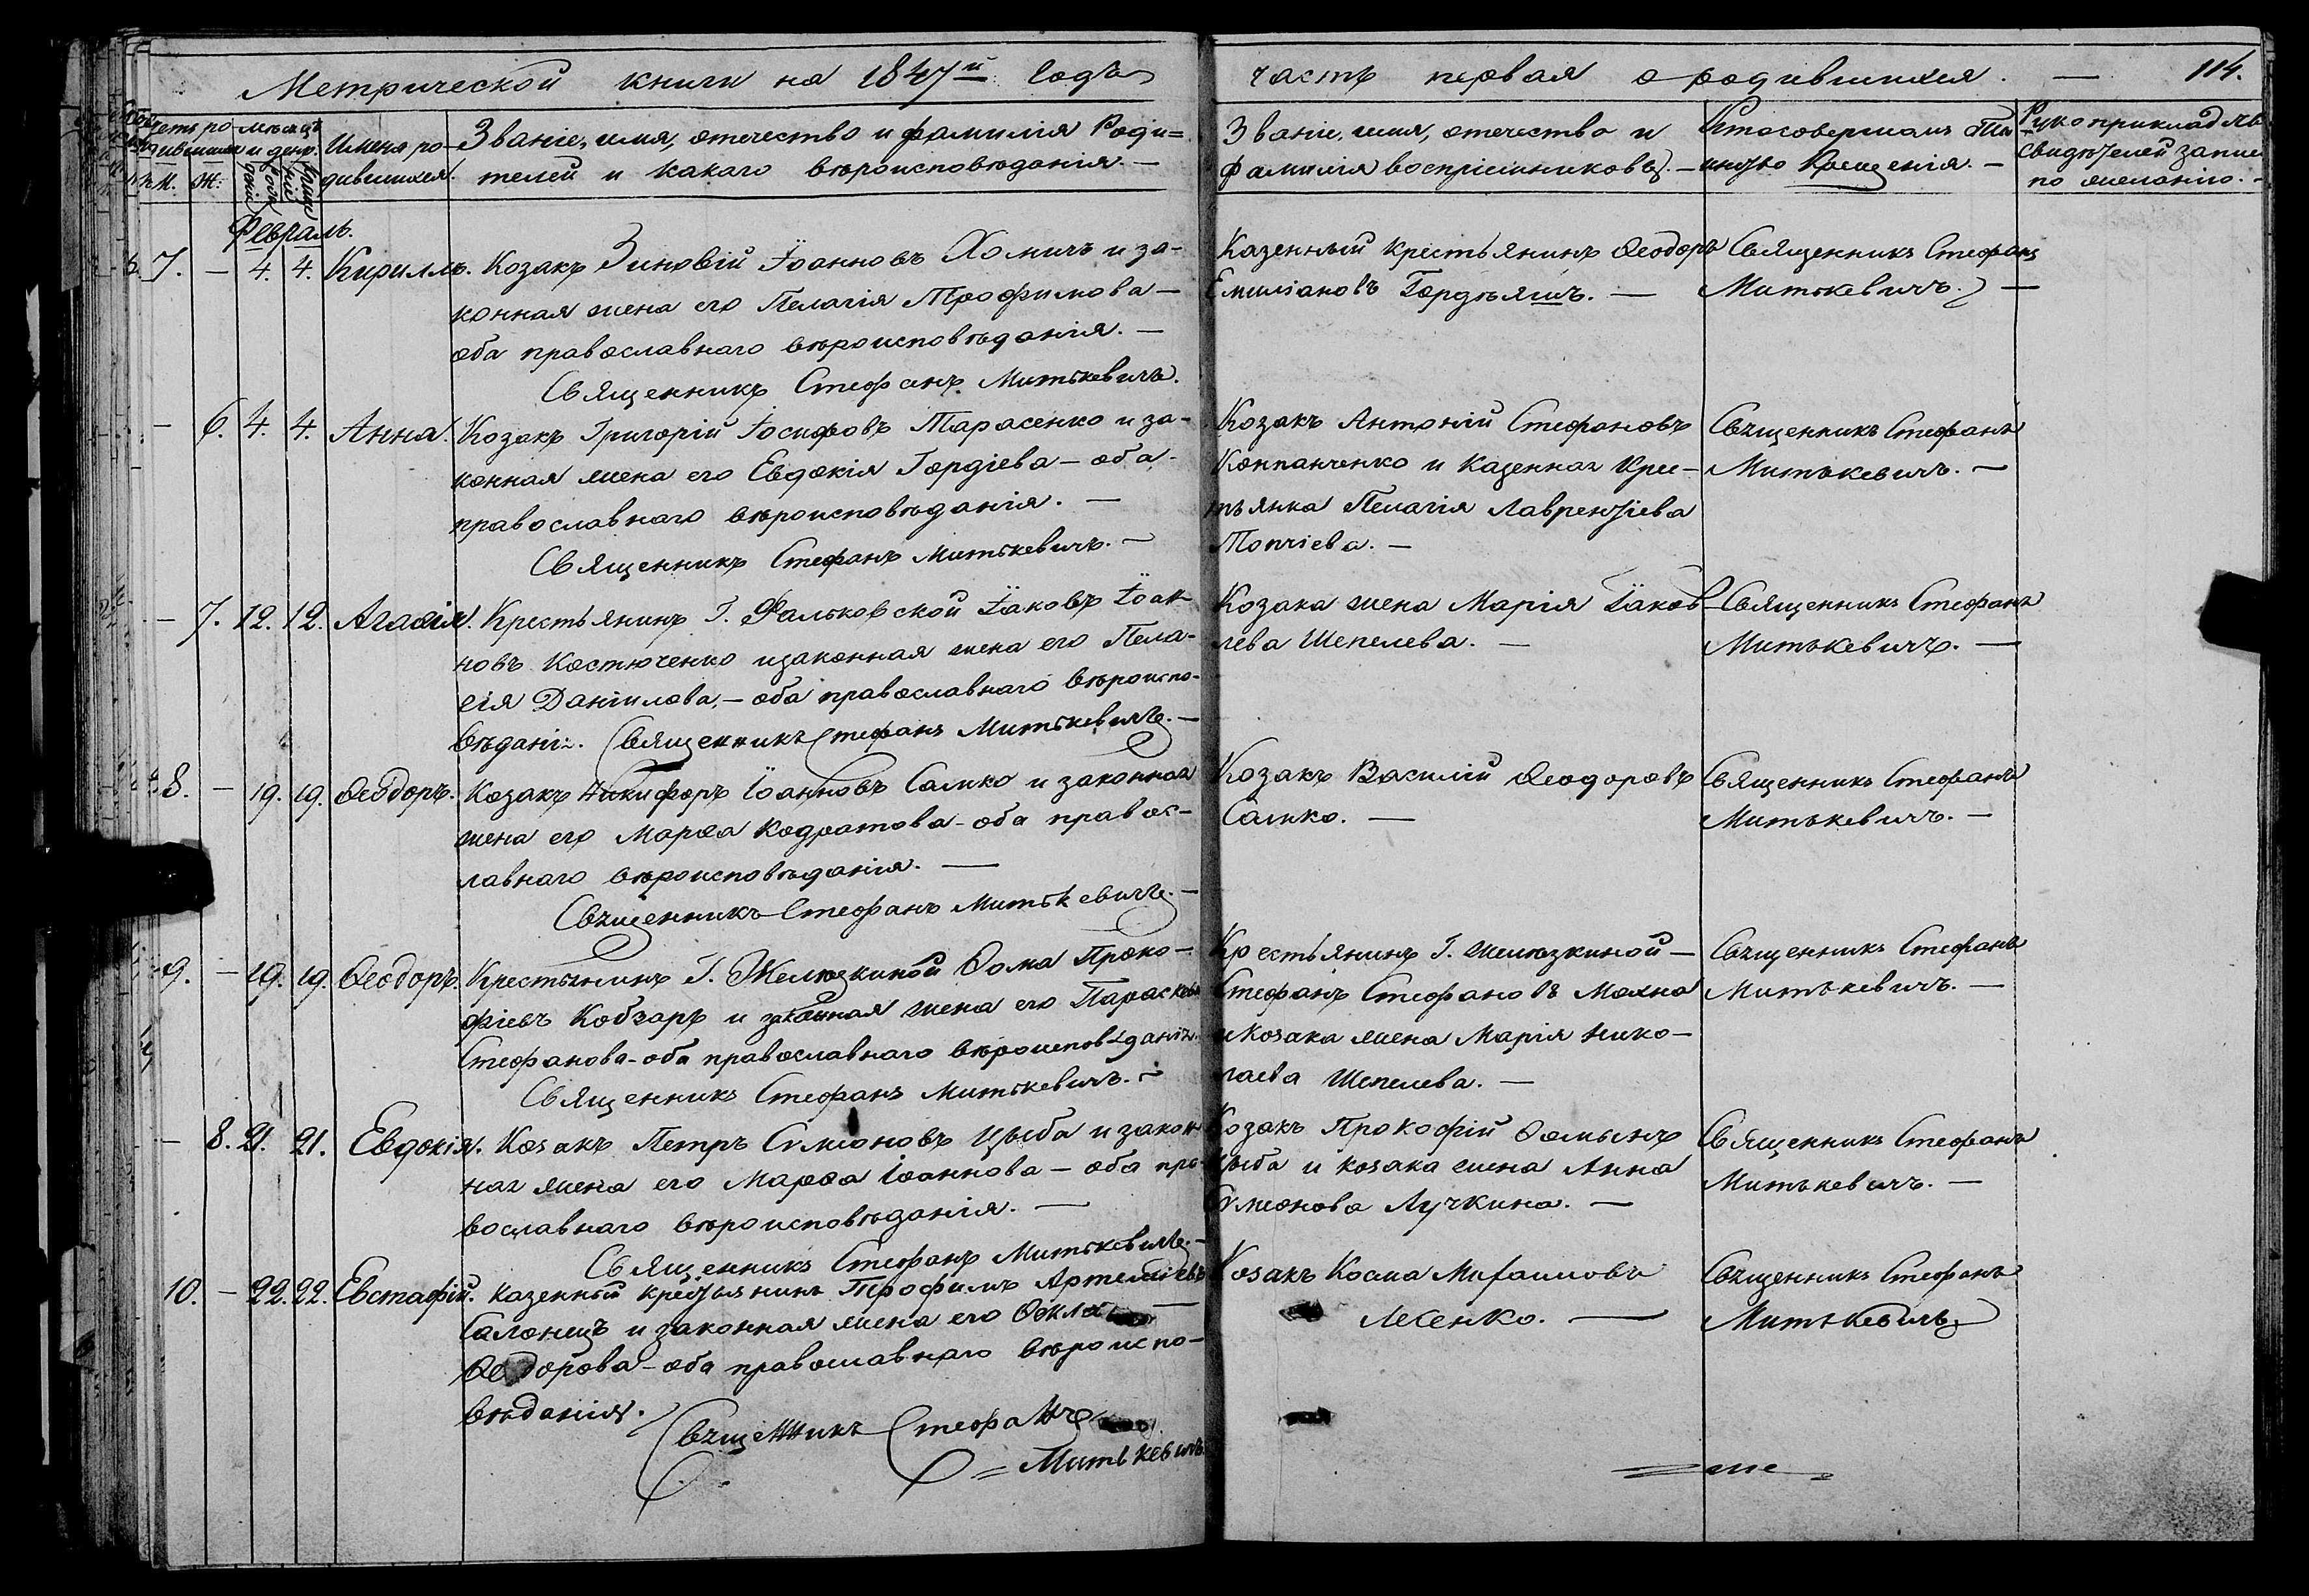 Метрической книги на 1847й годъ
часть первая о родившихся. — 114.
Счетъ родившихся
М. Ж.
Мѣсяцъ и день
рожденія
крещенія
Имена родившихся.
Званіе, имя, отечество и фамилія Роди=
телей и какаго вѣроисповѣданія. —
Званіе, имя, отечество и
фамилія воспріемниковъ. —
Кто совершалъ Таинство Крещенія. —
Рукоприкладство
свидѣтелей записи
по желанію. —
Февраль.
7. — 4. 4. Кириллъ.
Козакъ Зиновій Іоанновъ Хомичъ и за-
конная жена его Пелагія Трофимова —
оба православнаго вѣроисповѣданія. —
Священникъ Стефанъ Митькевичъ.
Казенный крестьянинъ Ѳеодоръ
Емиліановъ Гордѣяшъ. —
Священникъ Стефанъ
Митькевичъ. —
— 6. 4. 4. Анна.
Козакъ Григорій Іосифовъ Тарасенко и за-
конная жена его Евдокія Гордіева — оба
православнаго вѣроисповѣданія. —
Священникъ Стефанъ Митькевичъ. —
Козакъ Антоній Стефановъ
Коппанченко и Казенная крес-
тьянка Пелагія Лаврентіева
Топчіева. —
Священникъ Стефанъ
Митькевичъ. —
— 7. 12. 12. Агафія.
Крестьянинъ Г. Фальковской Іаковъ Іоан-
новъ Костюченко и законная жена его Пела-
гія Даніилова, — оба православнаго вѣроиспо-
вѣданія. Священникъ Стефанъ Митькевичъ. —
Козака жена Марія Іаков-
лева Шепелева. —
Священникъ Стефанъ
Митькевичъ. —
8. — 19. 19. Ѳеодоръ.
Козакъ Никифоръ Іоанновъ Самко и законная
жена его Марѳа Кодратова — оба правос-
лавнаго вѣроисповѣданія. —
Священникъ Стефанъ Митькевичъ. —
Козакъ Василій Ѳеодоровъ
Самко. —
Священникъ Стефанъ
Митькевичъ. —
9. — 19. 19. Ѳеодоръ.
Крестьянинъ Г. Желюзкиной Ѳома Проко-
фіевъ Кобзарь и законная жена его Параскева
Стефанова — оба православнаго вѣроисповѣданія.
Священникъ Стефанъ Митькевичъ. —
Крестьянинъ Г. Желюзкиной —
Стефанъ Стефановъ Махна
и козака жена Марія Нико-
лаева Шепелева. —
Священникъ Стефанъ
Митькевичъ. —
— 8. 21. 21. Евдокія.
Козакъ Петръ Сѵмеоновъ Цыба и закон-
ная жена его Марѳа Іоаннова — оба пра-
вославнаго вѣроисповѣданія. —
Священникъ Стефанъ Митькевичъ. —
Козакъ Прокофій Ѳоминъ
Цыба и козака жена Анна
Сѵмеонова Лучкина. —
Священникъ Стефанъ
Митькевичъ. —
10. — 22. 22. Евстафій.
Казенный крестьянинъ Трофимъ Артеміевъ
Салонецъ и законная жена его Ѳекла —
Ѳеодорова — оба православнаго вѣроиспо-
вѣданія.
Священникъ Стефанъ
= Митькевичъ
Козакъ Косма Михаиловъ
Лесенко. —
Священникъ Стефанъ
Митькевичъ